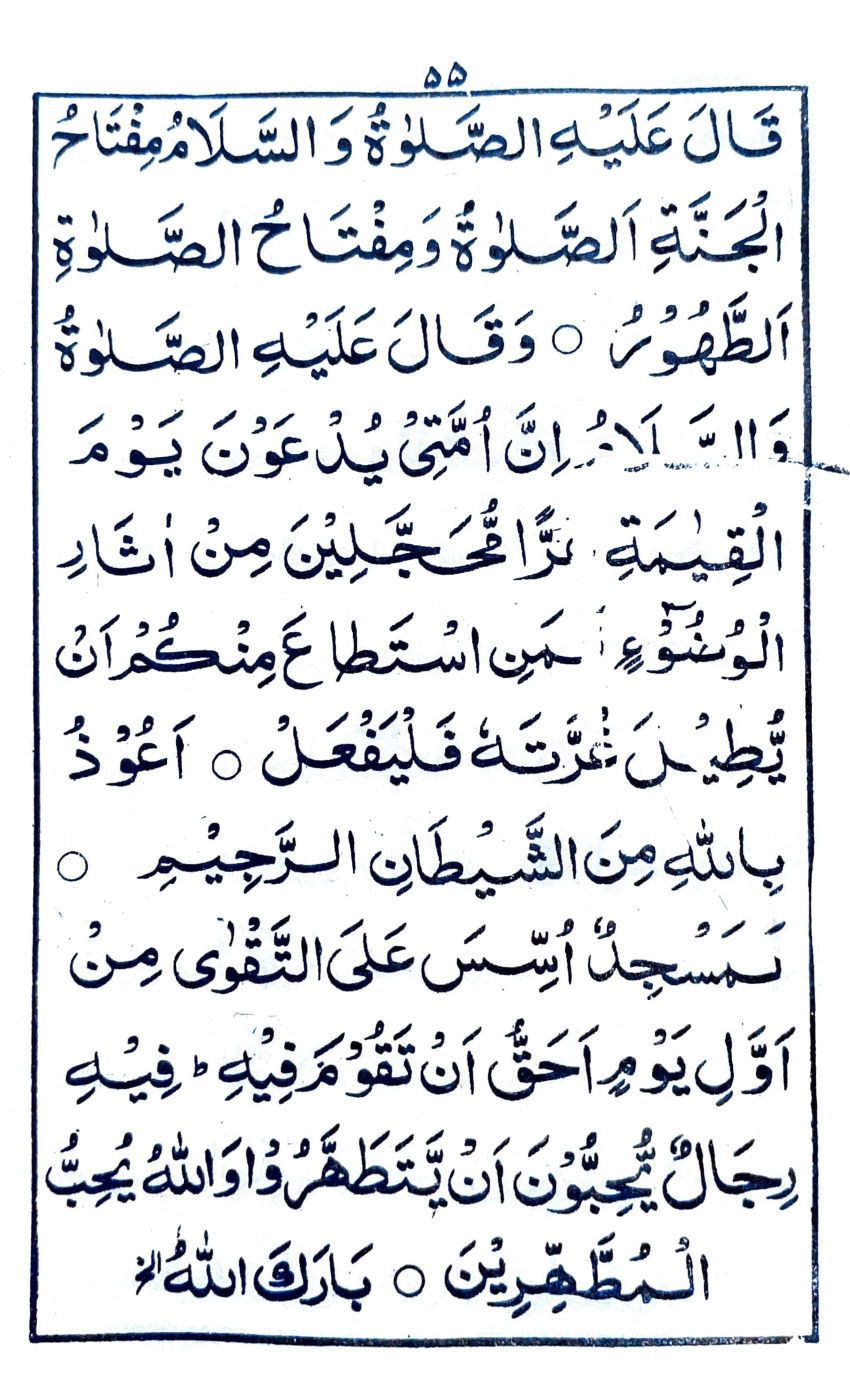 ۵۵
قَالَ عَلَيْهِ الصَّلٰوةُ وَ السَّلَامُ مِفْتَاحُ
الْجَنَّةِ اَلصَّلٰوةُ وَمِفْتَاحُ الصَّلٰوةِ
اَلطَّهُوْرُ ○ وَقَالَ عَلَيْهِ الصَّلٰوةُ
وَالسَّلَامُ اِنَّ اُمَّتِیْ يُدْعَوْنَ يَوْمَ
الْقِيٰمَةِ غُرًّا مُّحَجَّلِيْنَ مِنْ اٰثَارِ
الْوُضُوْٓءِ فَمَنِ اسْتَطَاعَ مِنْكُمْ اَنْ
يُّطِيْلَ غُرَّتَهٗ فَلْيَفْعَلْ ○ اَعُوْذُ
بِاللّٰهِ مِنَ الشَّيْطَانِ الرَّجِيْمِ ○
لَمَسْجِدٌ اُسِّسَ عَلَی التَّقْوٰى مِنْ
اَوَّلِ يَوْمٍ اَحَقُّ اَنْ تَقُوْمَ فِيْهِ ؕ فِيْهِ
رِجَالٌ يُّحِبُّوْنَ اَنْ يَّتَطَهَّرُوْا وَاللّٰهُ يُحِبُّ
الْمُطَّهِّرِيْنَ ○ بَارَكَ اللّٰهُ الخ